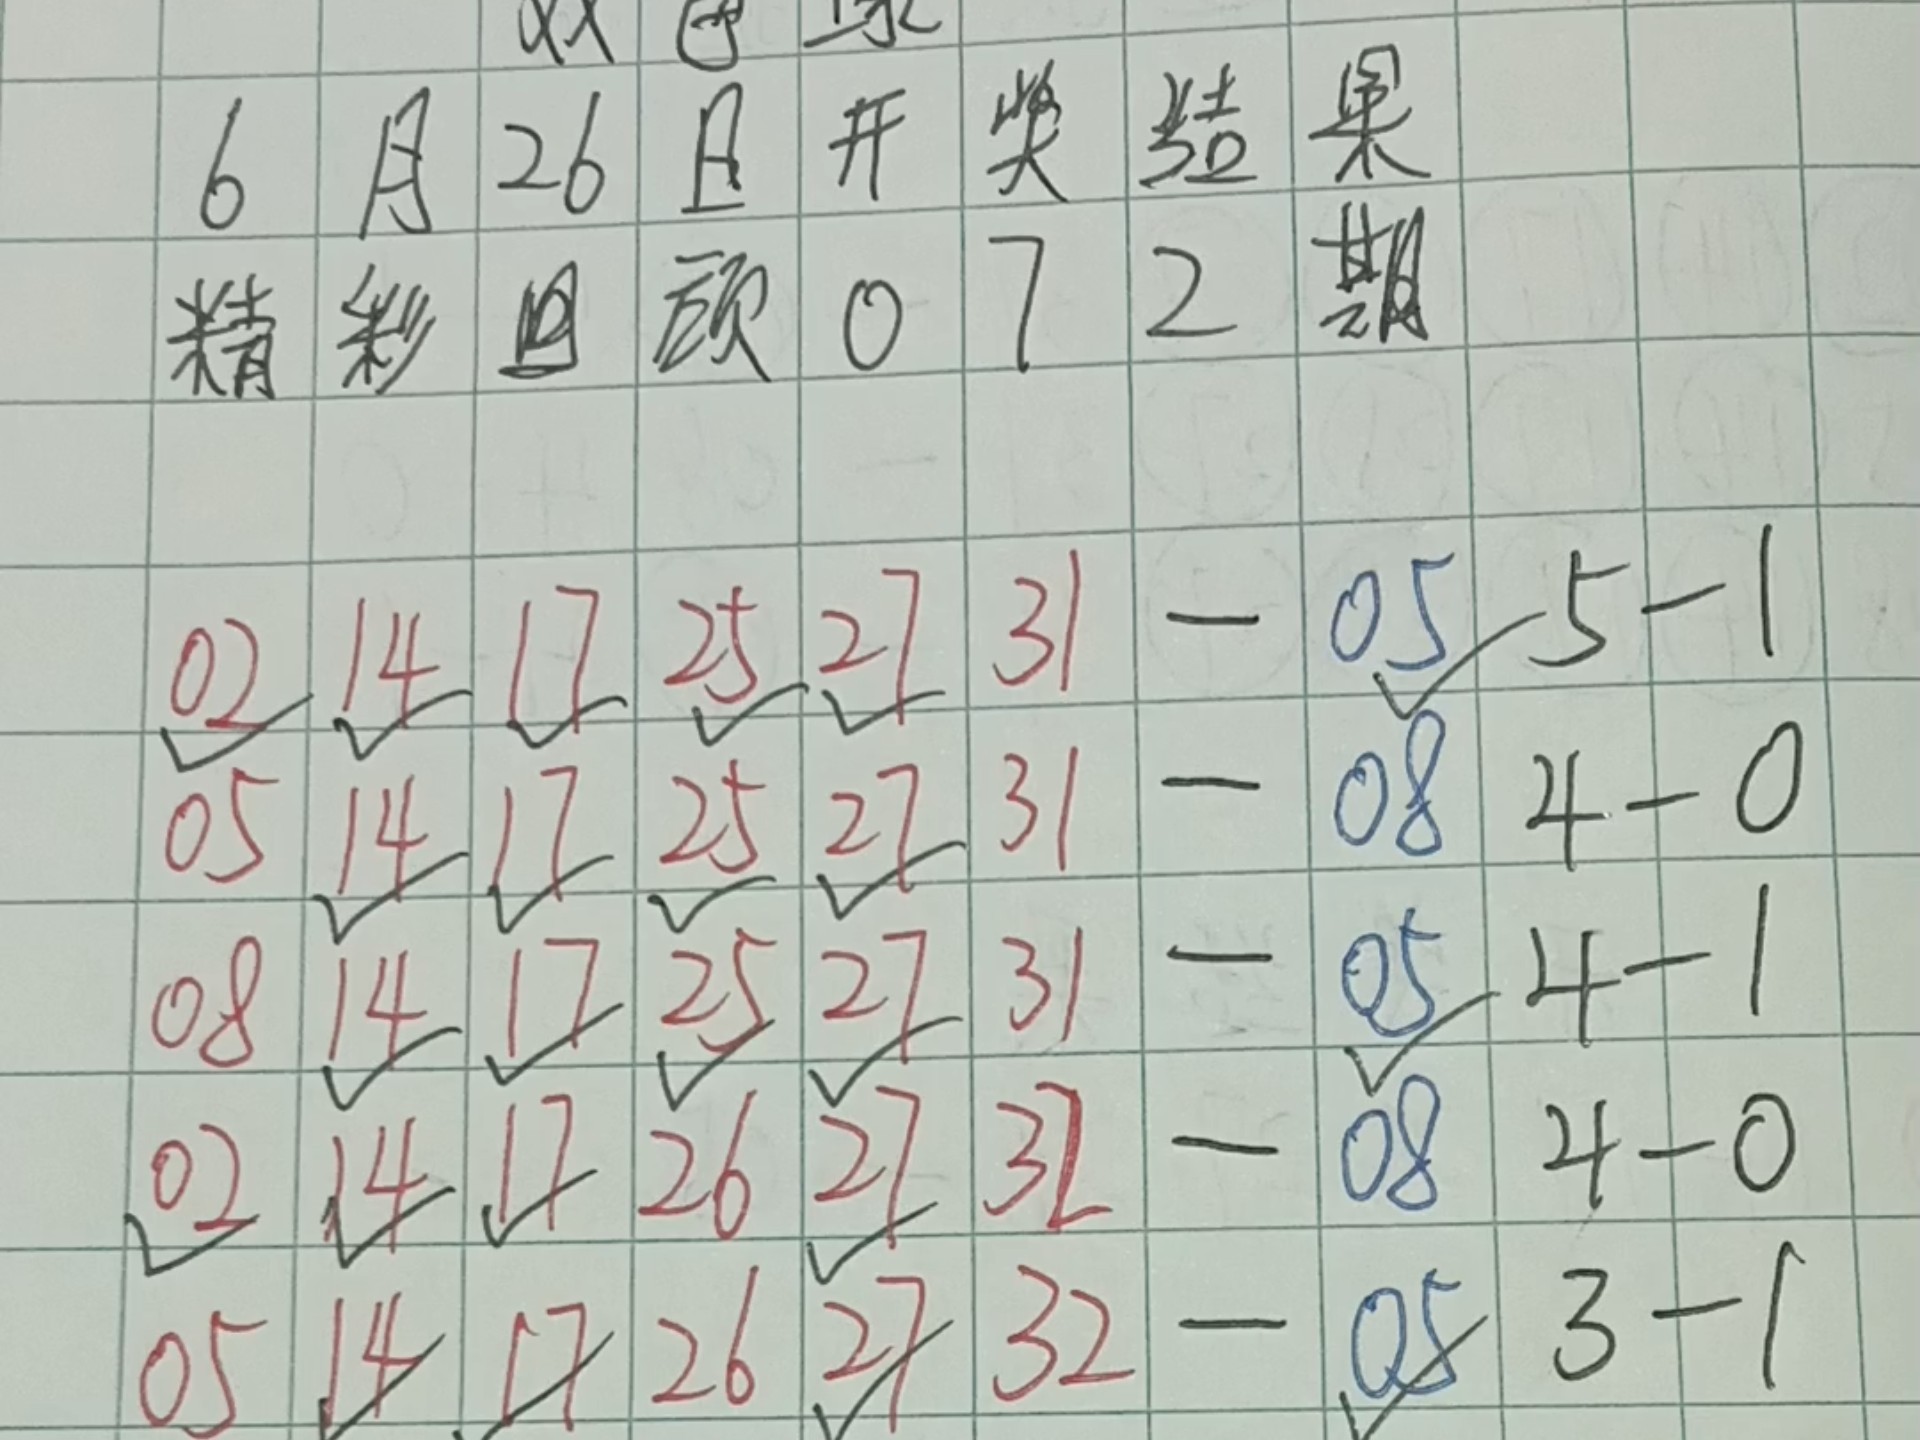 双色球
6月26日开奖结果
精彩回顾072期
02 14 17 25 27 31 — 05 5-1
05 14 17 25 27 31 — 08 4-0
08 14 17 25 27 31 — 05 4-1
02 14 17 26 27 32 — 08 4-0
05 14 17 26 27 32 — 05 3-1